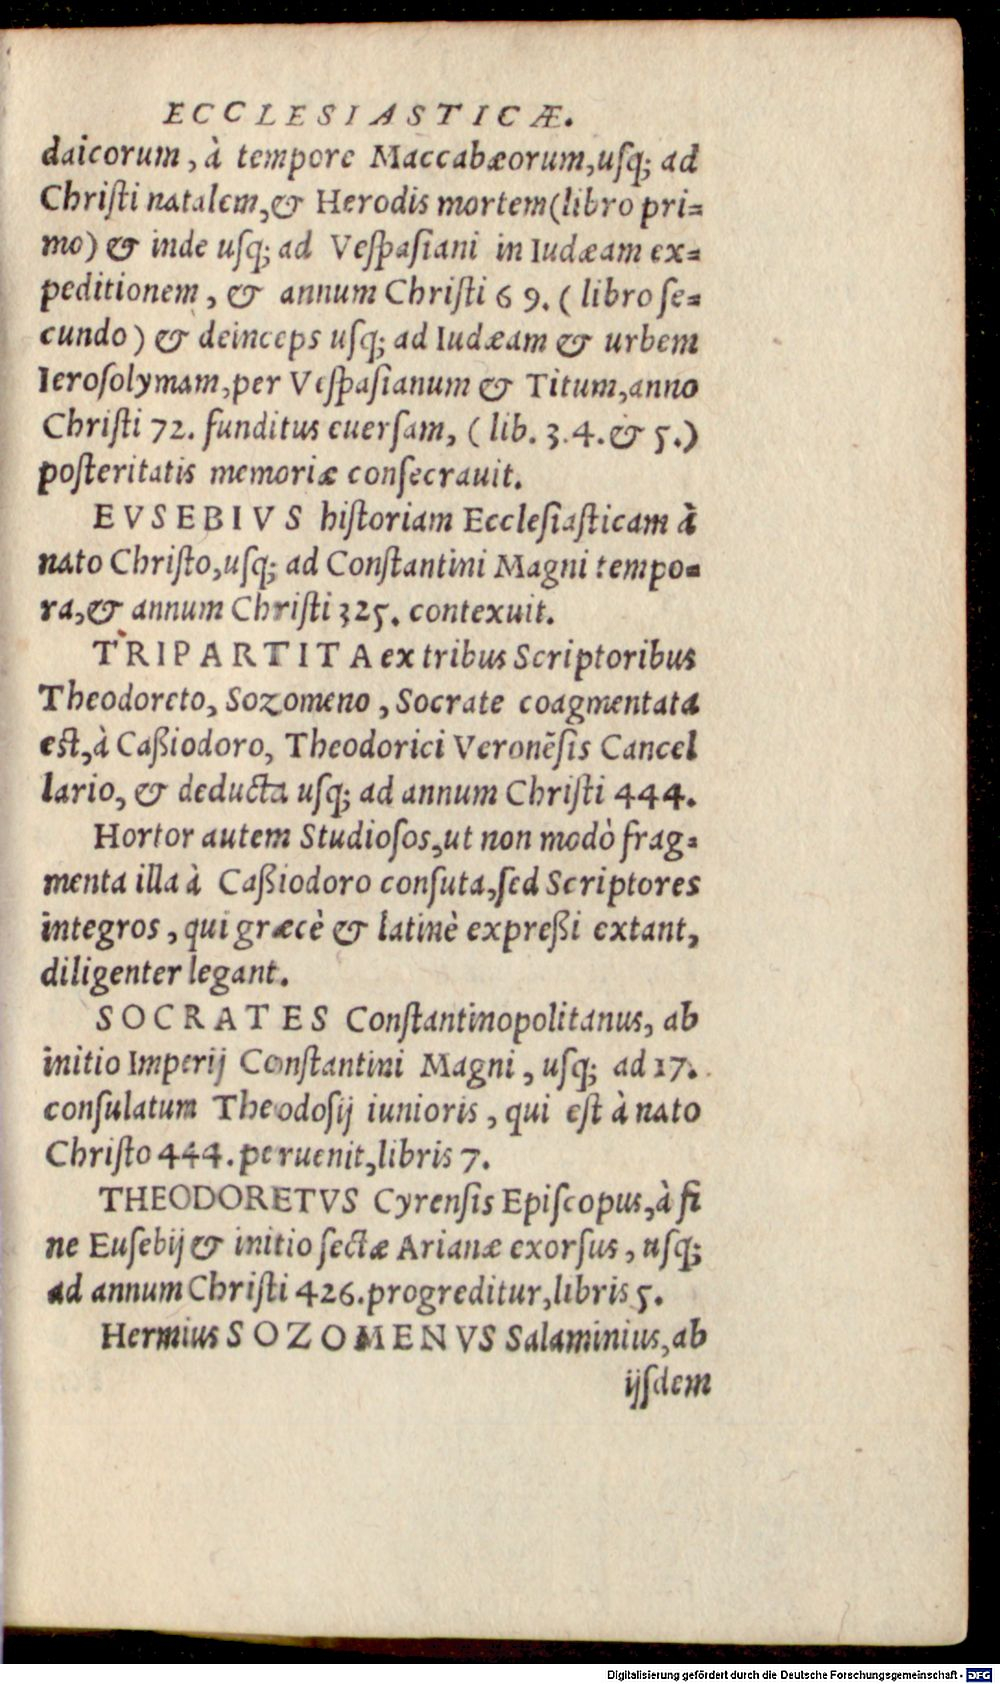 ECCLESIASTICÆ.
daicorum, à tempore Maccabæorum, usq; ad
Christi natalem, & Herodis mortem (libro pri=
mo) & inde usq; ad Vespasiani in Iudæam ex=
peditionem, & annum Christi 69. (libro se=
cundo) & deinceps usq; ad Iudæam & urbem
Ierosolymam, per Vespasianum & Titum, anno
Christi 72. funditus euersam, (lib. 3.4. & 5.)
posteritatis memoriæ consecrauit.
EVSEBIVS historiam Ecclesiasticam à
nato Christo, usq; ad Constantini Magni tempo=
ra, & annum Christi 325. contexuit.
TRIPARTITA ex tribus Scriptoribus
Theodoreto, Sozomeno, Socrate coagmentata
est, à Caßiodoro, Theodorici Veronēsis Cancel
lario, & deducta usq; ad annum Christi 444.
Hortor autem Studiosos, ut non modò frag=
menta illa à Caßiodoro consuta, sed Scriptores
integros, qui græcè & latinè expreßi extant,
diligenter legant.
SOCRATES Constantinopolitanus, ab
initio Imperij Constantini Magni, usq; ad 17.
consulatum Theodosij iunioris, qui est à nato
Christo 444. peruenit, libris 7.
THEODORETVS Cyrensis Episcopus, à fi
ne Eusebij & initio sectæ Arianæ exorsus, usq;
ad annum Christi 426. progreditur, libris 5.
Hermius SOZOMENVS Salaminius, ab
ijsdem
Digitalisierung gefördert durch die Deutsche Forschungsgemeinschaft - DFG